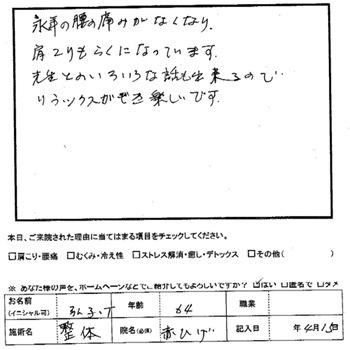 永年の腰の痛みがなくなり、
肩こりもらくになっています。
先生とのいろいろな話も出来るので
リラックスができ楽しいです。
本日、ご来院された理由に当てはまる項目をチェックしてください。
□肩こり・腰痛 □むくみ・冷え性 □ストレス解消・癒し・デトックス □その他( )
※ あなた様の声を、ホームページなどでご紹介してもよろしいですか? ☑はい □匿名で □ダメ
お名前 (イニシャル可) T 年齢 64 職業
施術名 整体 院名(必須) 赤ひげ 記入日 年 4月15日